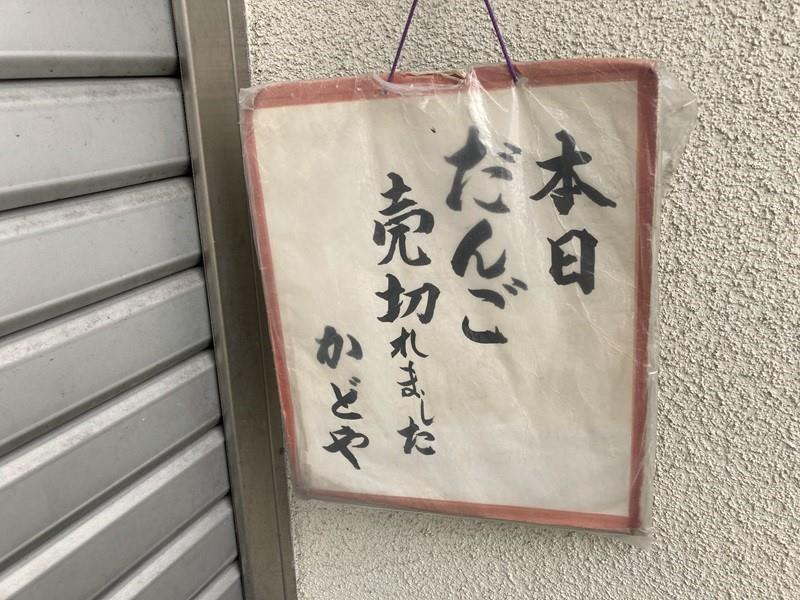 本日
だんご
売切れました
かどや